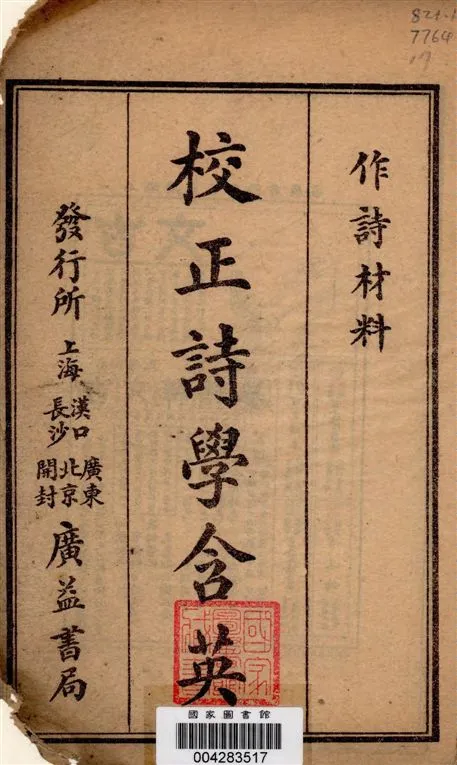 作詩材料
校正詩學含英
發行所 上海 漢口 長沙 廣東 北京 開封 廣益書局
821.1
7764
國家圖書館
004283517